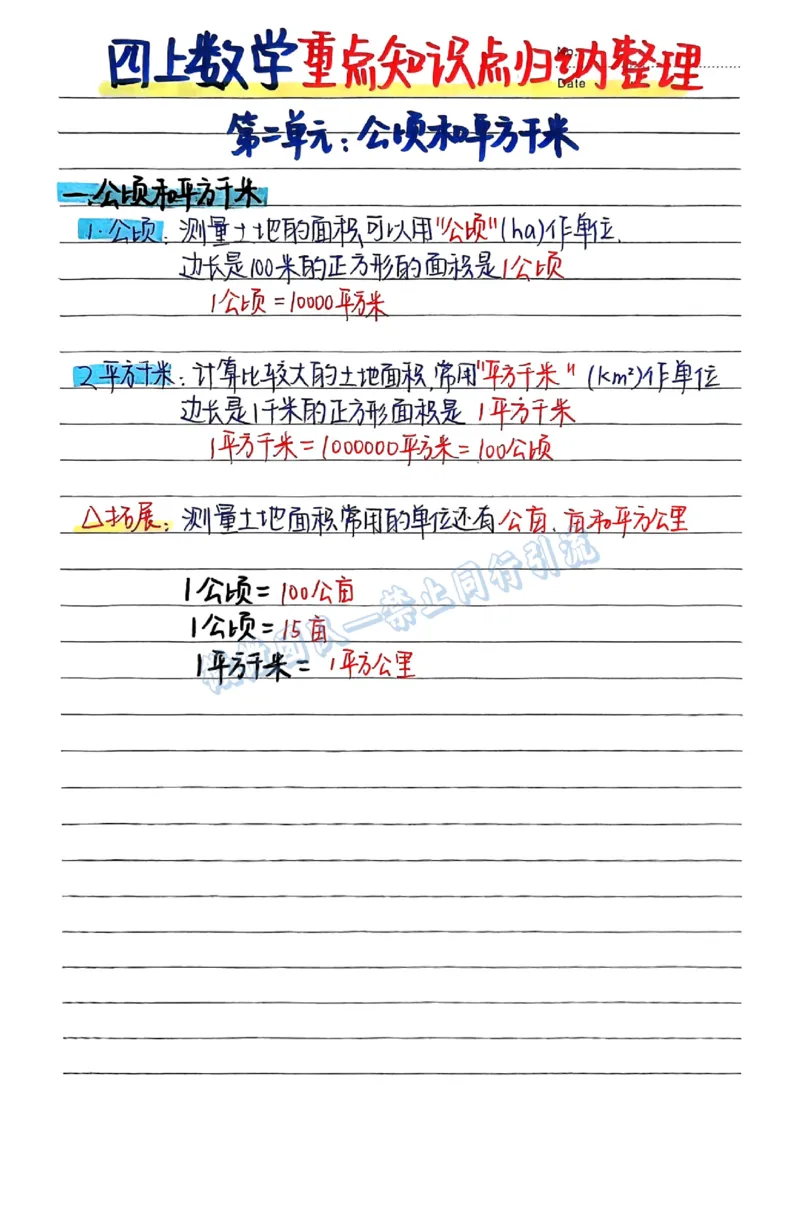 四上数学重点知识点归纳整理
No.
Date
第二单元：公顷和平方千米
一.公顷和平方千米
1.公顷：测量土地的面积，可以用"公顷"(ha)作单位.
边长是100米的正方形的面积是1公顷
1公顷=10000平方米
2.平方千米：计算比较大的土地面积,常用"平方千米"(km²)作单位
边长是1千米的正方形面积是 1平方千米
1平方千米=1000000平方米=100公顷
△拓展：测量土地面积常用的单位还有公亩、亩和平方公里
1公顷=100公亩
1公顷=15亩
1平方千米=1平方公里
团队—禁止同行引流